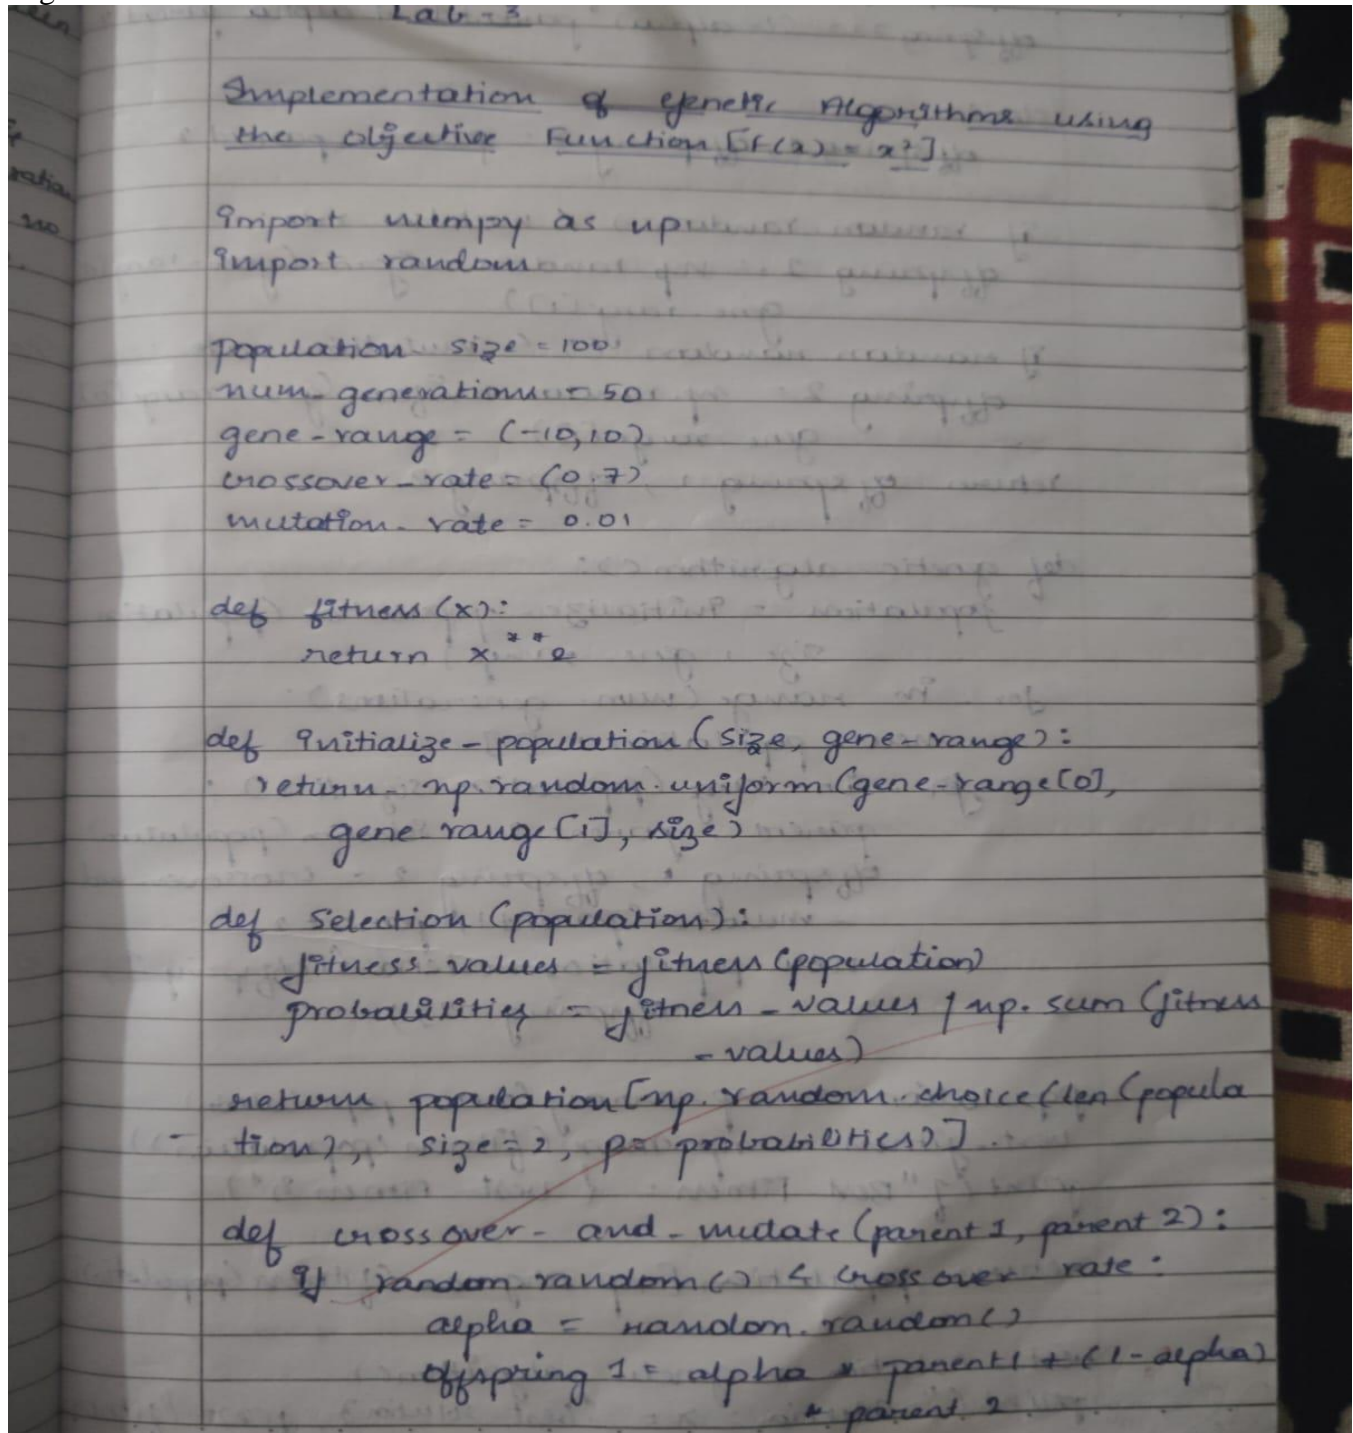 Lab - 3
Implementation of Genetic Algorithms using
the objective Function [f(x) = x²]
import numpy as np
import random
population size = 100
num_generations = 50
gene-range = (-10,10)
crossover-rate = (0.7)
mutation-rate = 0.01
def fitness (x):
return x**2
def initialize-population (size, gene-range):
return np.random.uniform (gene-range[0],
gene range[1], size)
def selection (population):
fitness values = fitness (population)
probabilities = fitness - values / np. sum (fitness
- values)
return population [np. random. choice (len (popula
tion), size=2, p= probabilities)]
def crossover- and - mutate (parent 1, parent 2):
if random. random() < cross over rate:
alpha = random. random()
offspring 1 = alpha * parent1 + (1-alpha)
* parent 2